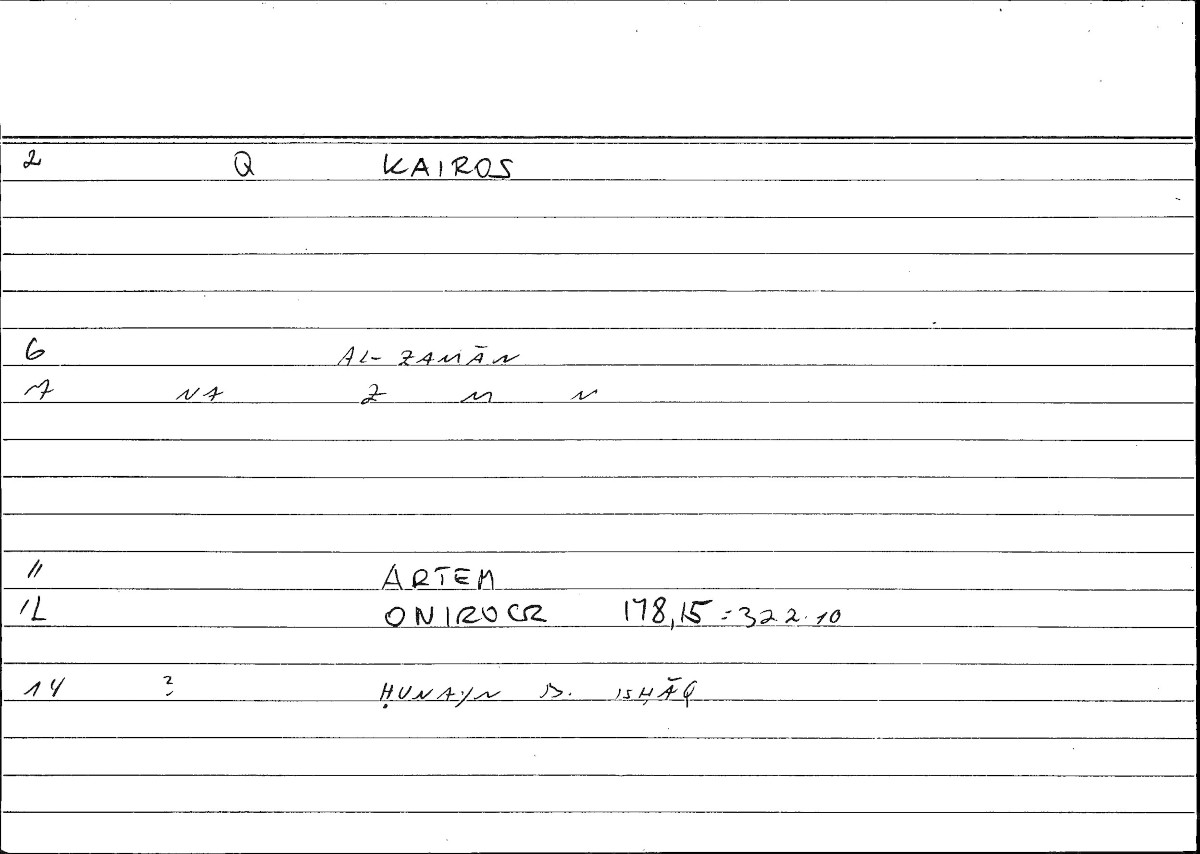 2 Q KAIROS
6 AL-ZAMĀN
7 NA Z M N
11 ARTEM
12 ONIROCR 178,15=322.10
14 ? ḤUNAYN B. ISḤĀQ